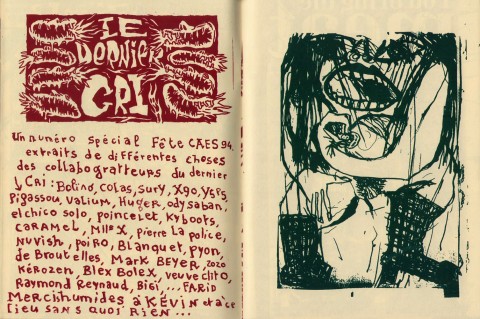 LE
DORNIER
CRI
Un numéro spécial Fête CAES 94.
extraits de différentes choses
des collabogratteurs du dernier
CRI : Bolino, colas, sury, Xgo, Y5P5,
Pigassou, Valium, Huger, ody saban,
el chico solo, poincelet, Kyboots,
CARAMEL, Mlle X, pierre la police,
NUVish, poiro, Blanquet, pyon,
de Broutelles, MARK BEYER, 2020
KÉROZEN, Blex Bolex, veuveclito,
Raymond Reynaud, Bisi, ... FARID
Mercishumides à KÉVIN et à ce
lieu sans quoi Rien ...